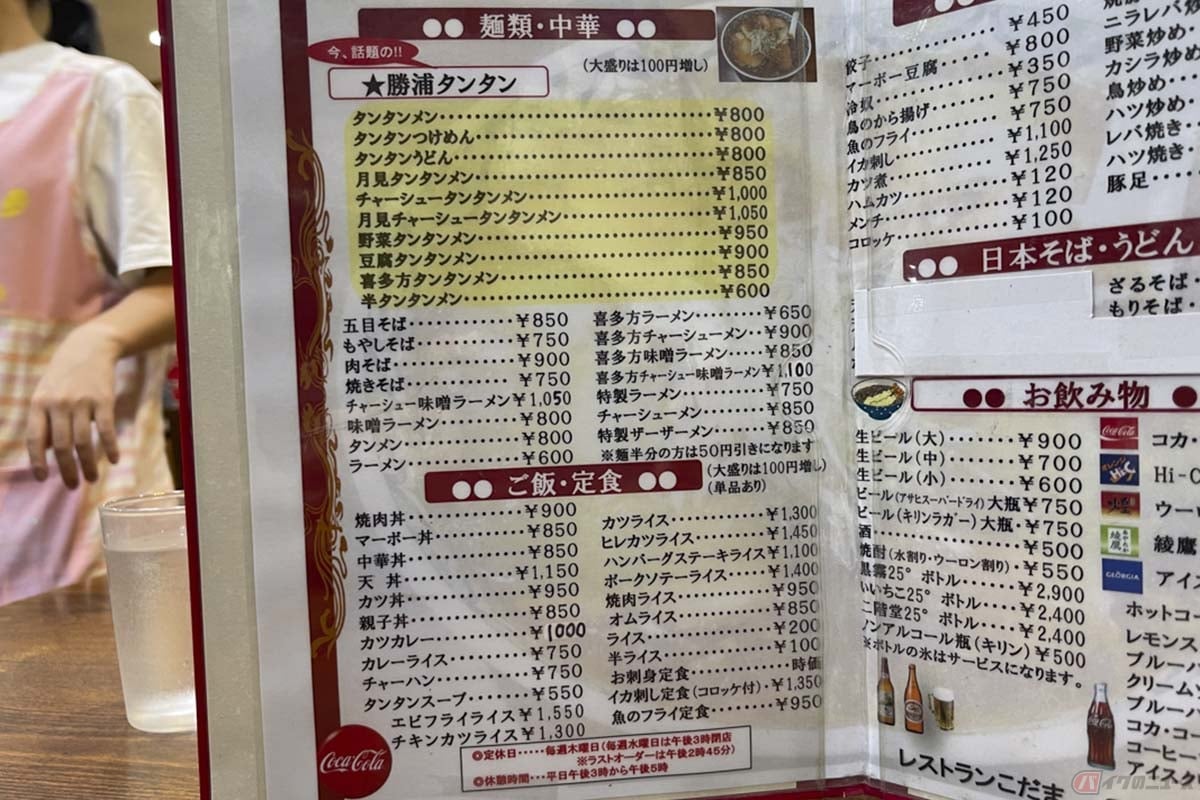 ●● 麺類・中華 ●●
今、話題の!!
(大盛りは100円増し)
★勝浦タンタン
タンタンメン ¥800
タンタンつけめん ¥800
タンタンうどん ¥800
月見タンタンメン ¥850
チャーシュータンタンメン ¥1,000
月見チャーシュータンタンメン ¥1,050
野菜タンタンメン ¥950
豆腐タンタンメン ¥900
喜多方タンタンメン ¥850
半タンタンメン ¥600
五目そば ¥850
もやしそば ¥750
肉そば ¥900
焼きそば ¥750
チャーシュー味噌ラーメン ¥1,050
味噌ラーメン ¥800
タンメン ¥800
ラーメン ¥600
喜多方ラーメン ¥650
喜多方チャーシューメン ¥900
喜多方味噌ラーメン ¥850
喜多方チャーシュー味噌ラーメン ¥1,100
特製ラーメン ¥750
チャーシューメン ¥850
特製ザーザーメン ¥850
※麺半分の方は50円引きになります
●● ご飯・定食 ●●
(大盛りは100円増し)
(単品あり)
焼肉丼 ¥900
マーボー丼 ¥850
中華丼 ¥850
天丼 ¥1,150
カツ丼 ¥950
親子丼 ¥850
カツカレー ¥1000
カレーライス ¥750
チャーハン ¥750
タンタンスープ ¥550
エビフライライス ¥1,550
チキンカツライス ¥1,300
カツライス ¥1,300
ヒレカツライス ¥1,450
ハンバーグステーキライス ¥1,100
ポークソテーライス ¥1,400
焼肉ライス ¥950
オムライス ¥850
ライス ¥200
半ライス ¥100
お刺身定食 時価
イカ刺し定食(コロッケ付) ¥1,350
魚のフライ定食 ¥950
◎定休日・・・・・毎週木曜日(毎週水曜日は午後3時閉店
※ラストオーダーは午後2時45分)
◎休憩時間・・・平日午後3時から午後5時
Coca-Cola
餃子 ¥450
マーボー豆腐 ¥800
冷奴 ¥350
鳥のから揚げ ¥750
魚のフライ ¥750
イカ刺し ¥1,100
カツ煮 ¥1,250
ハムカツ ¥120
メンチ ¥120
コロッケ ¥100
ニラレバ炒
野菜炒め
カシラ炒め
鳥炒め
ハツ炒め
レバ焼き
ハツ焼き
豚足
●● 日本そば・うどん
ざるそば
もりそば
●● お飲み物 ●
生ビール(大) ¥900
生ビール(中) ¥700
生ビール(小) ¥600
ビール(アサヒスーパードライ)大瓶 ¥750
ビール(キリンラガー)大瓶 ¥750
酒 ¥500
焼酎(水割り・ウーロン割り) ¥550
黒霧25°ボトル ¥2,900
いいちこ25°ボトル ¥2,400
二階堂25°ボトル ¥2,400
ノンアルコール瓶(キリン) ¥500
※ボトルの氷はサービスになります。
Coca-Cola
コカ・
Hi-C
ウーロ
綾鷹
GEORGIA
アイス
ホットコー
レモンス
ブルーハ
クリーム
ブルーハ
コカ・コー
コーヒー
アイスク
レストランこだま
バイクのニュース